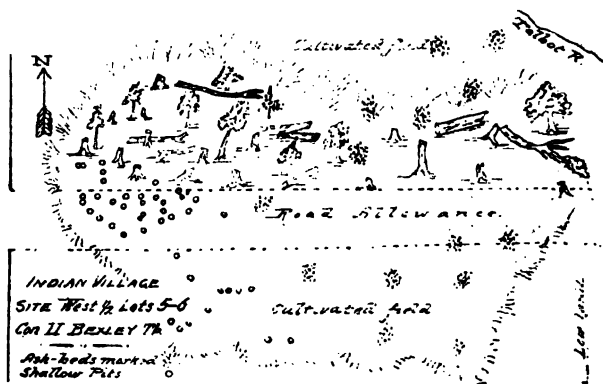 Cultivated field
Talbot R.
N
Road Allowance.
INDIAN VILLAGE
SITE West ½ Lots 5-6
Con II BEXLEY Tp.
Ash-beds marked
Shallow Pits o
Cultivated field
Low land